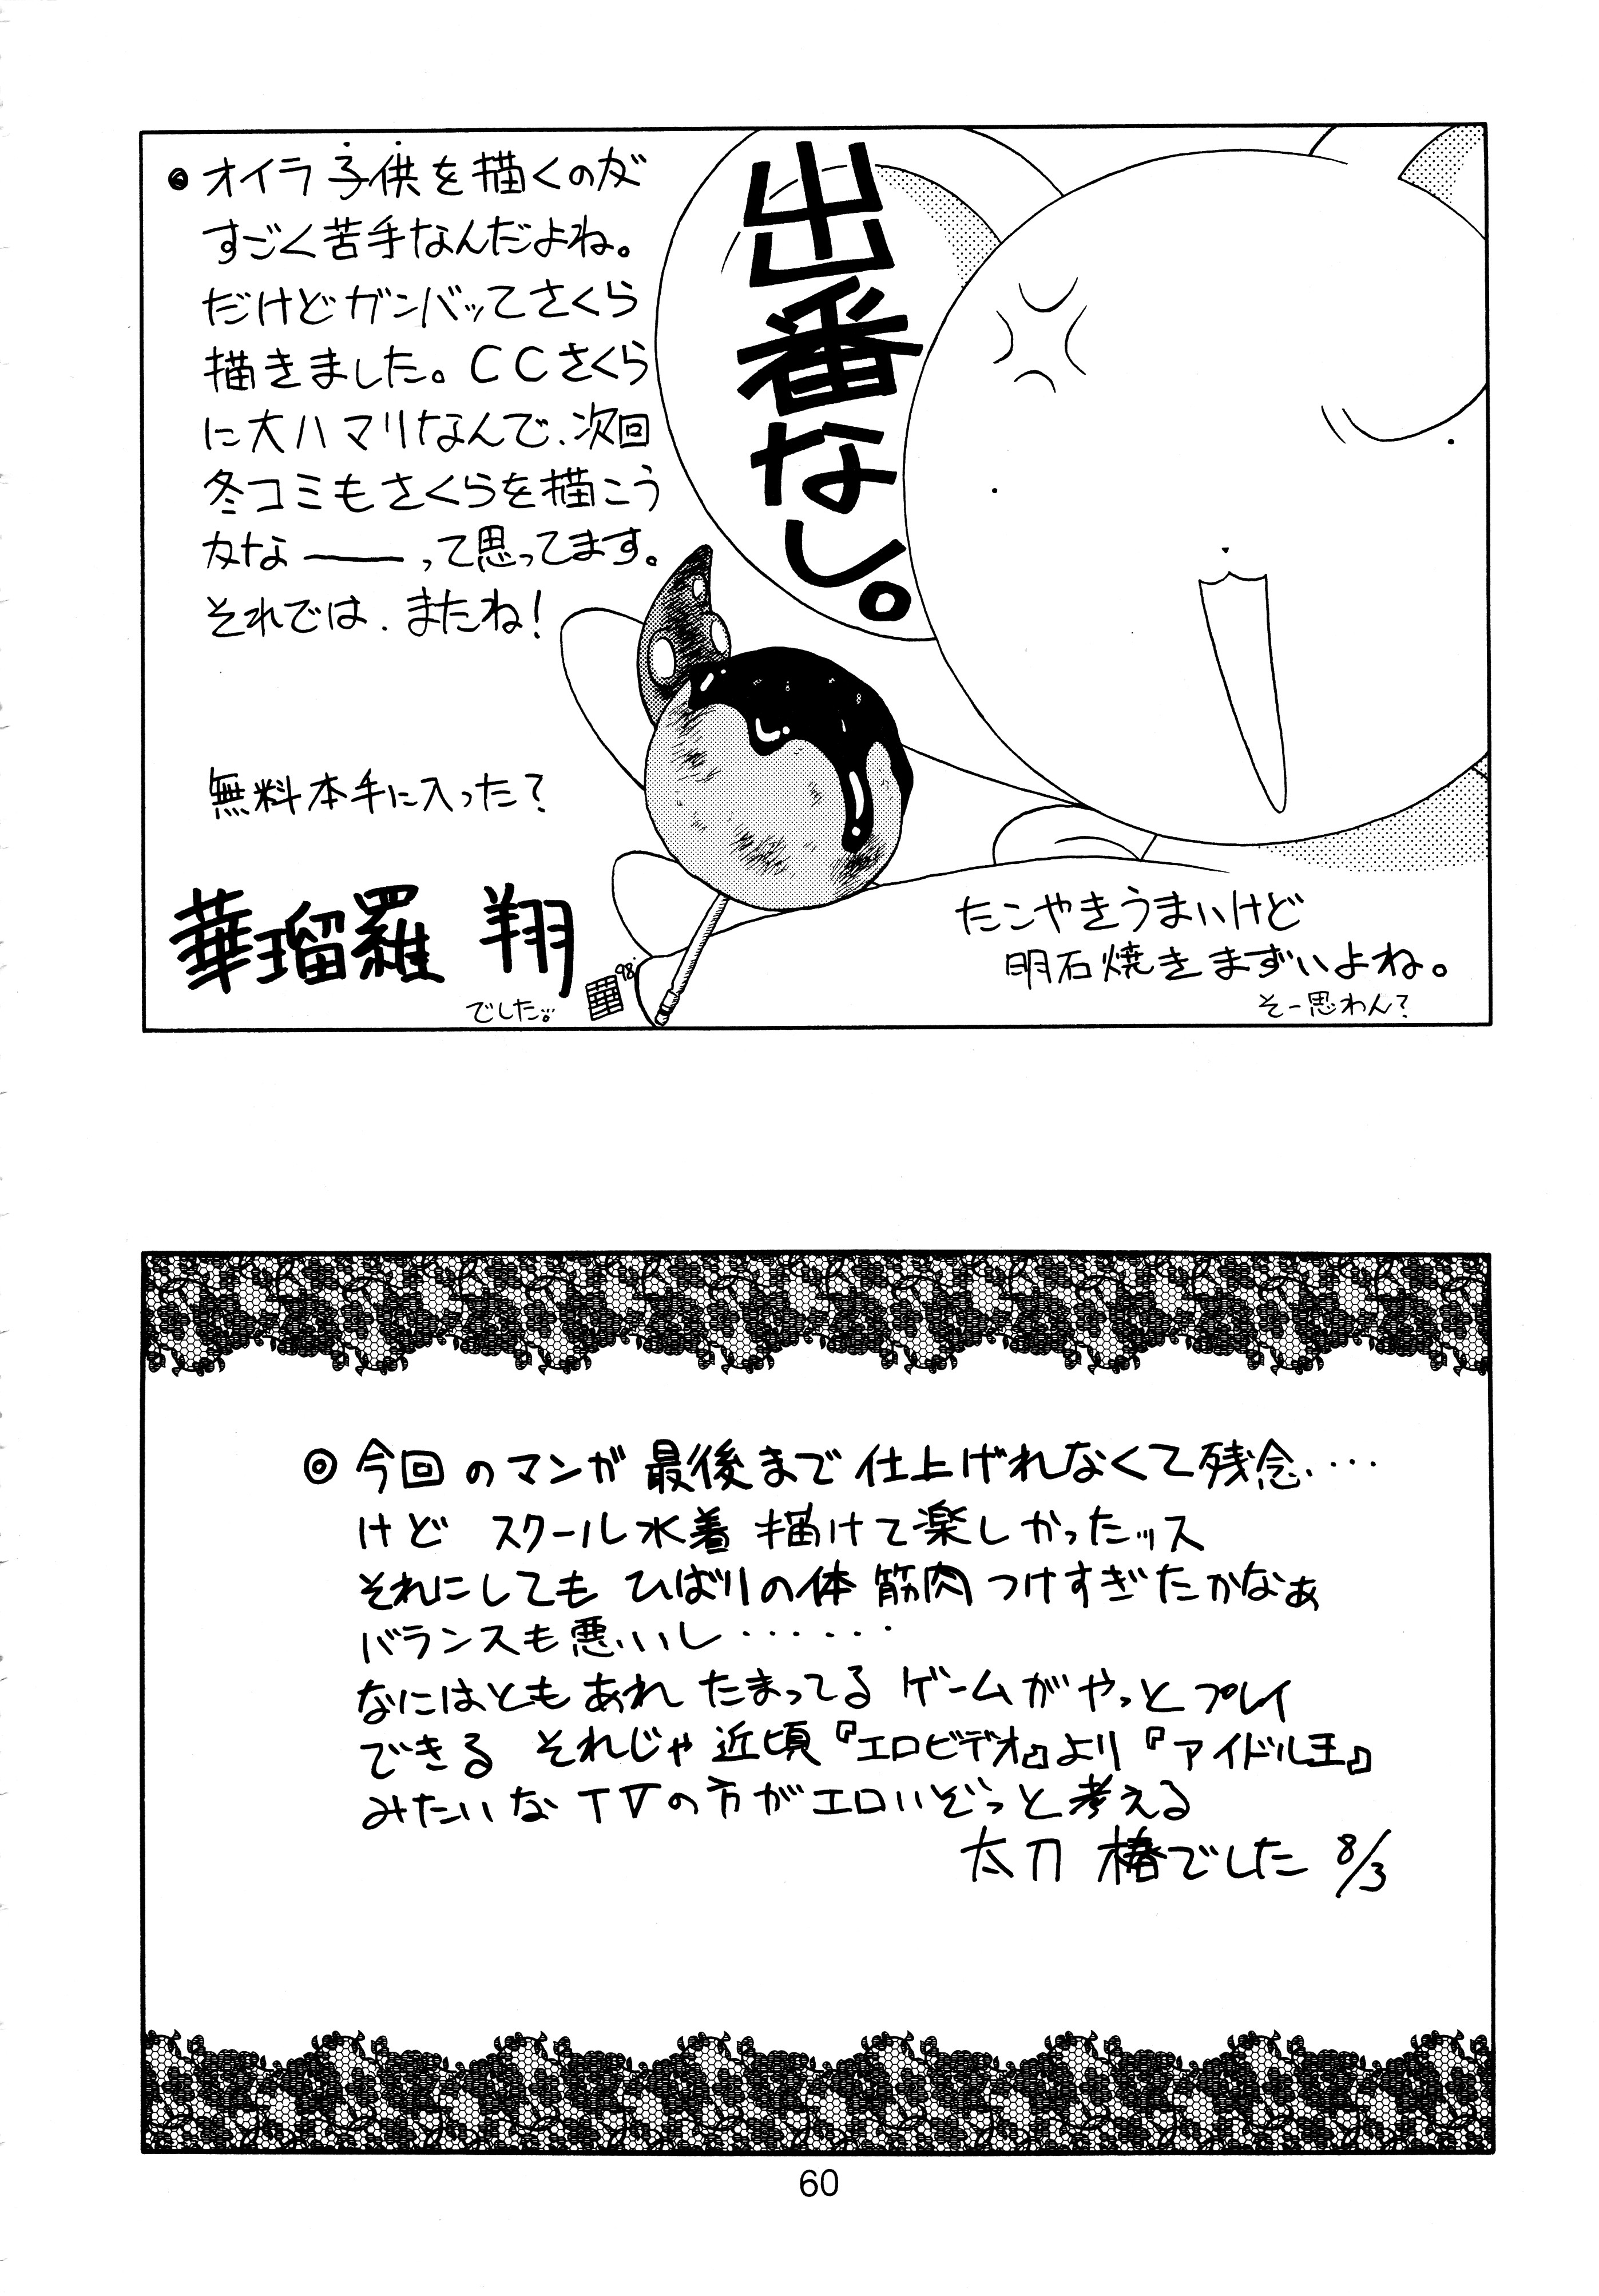 オイラ子供を描くのが
すごく苦手なんだよね。
だけどガンバッてさくら
描きました。CCさくら
に大ハマリなんで、次回
冬コミもさくらを描こう
かな――って思ってます。
それでは、またね！
無料本手に入った？
華瑠羅 翔
でした。
98.
出番なし。
たこやきうまいけど
明石焼きまずいよね。
そー思わん？
◎今回のマンガ最後まで仕上げれなくて残念....
けど スクール水着 描けて楽しかったッス
それにしても ひばりの体 筋肉つけすぎたかなぁ
バランスも悪いし......
なにはともあれ たまってる ゲームがやっと プレイ
できる それじゃ 近頃『エロビデオ』より『アイドル王』
みたいな TVの方がエロいぞっと考える
太刀 椿でした 8/3
60